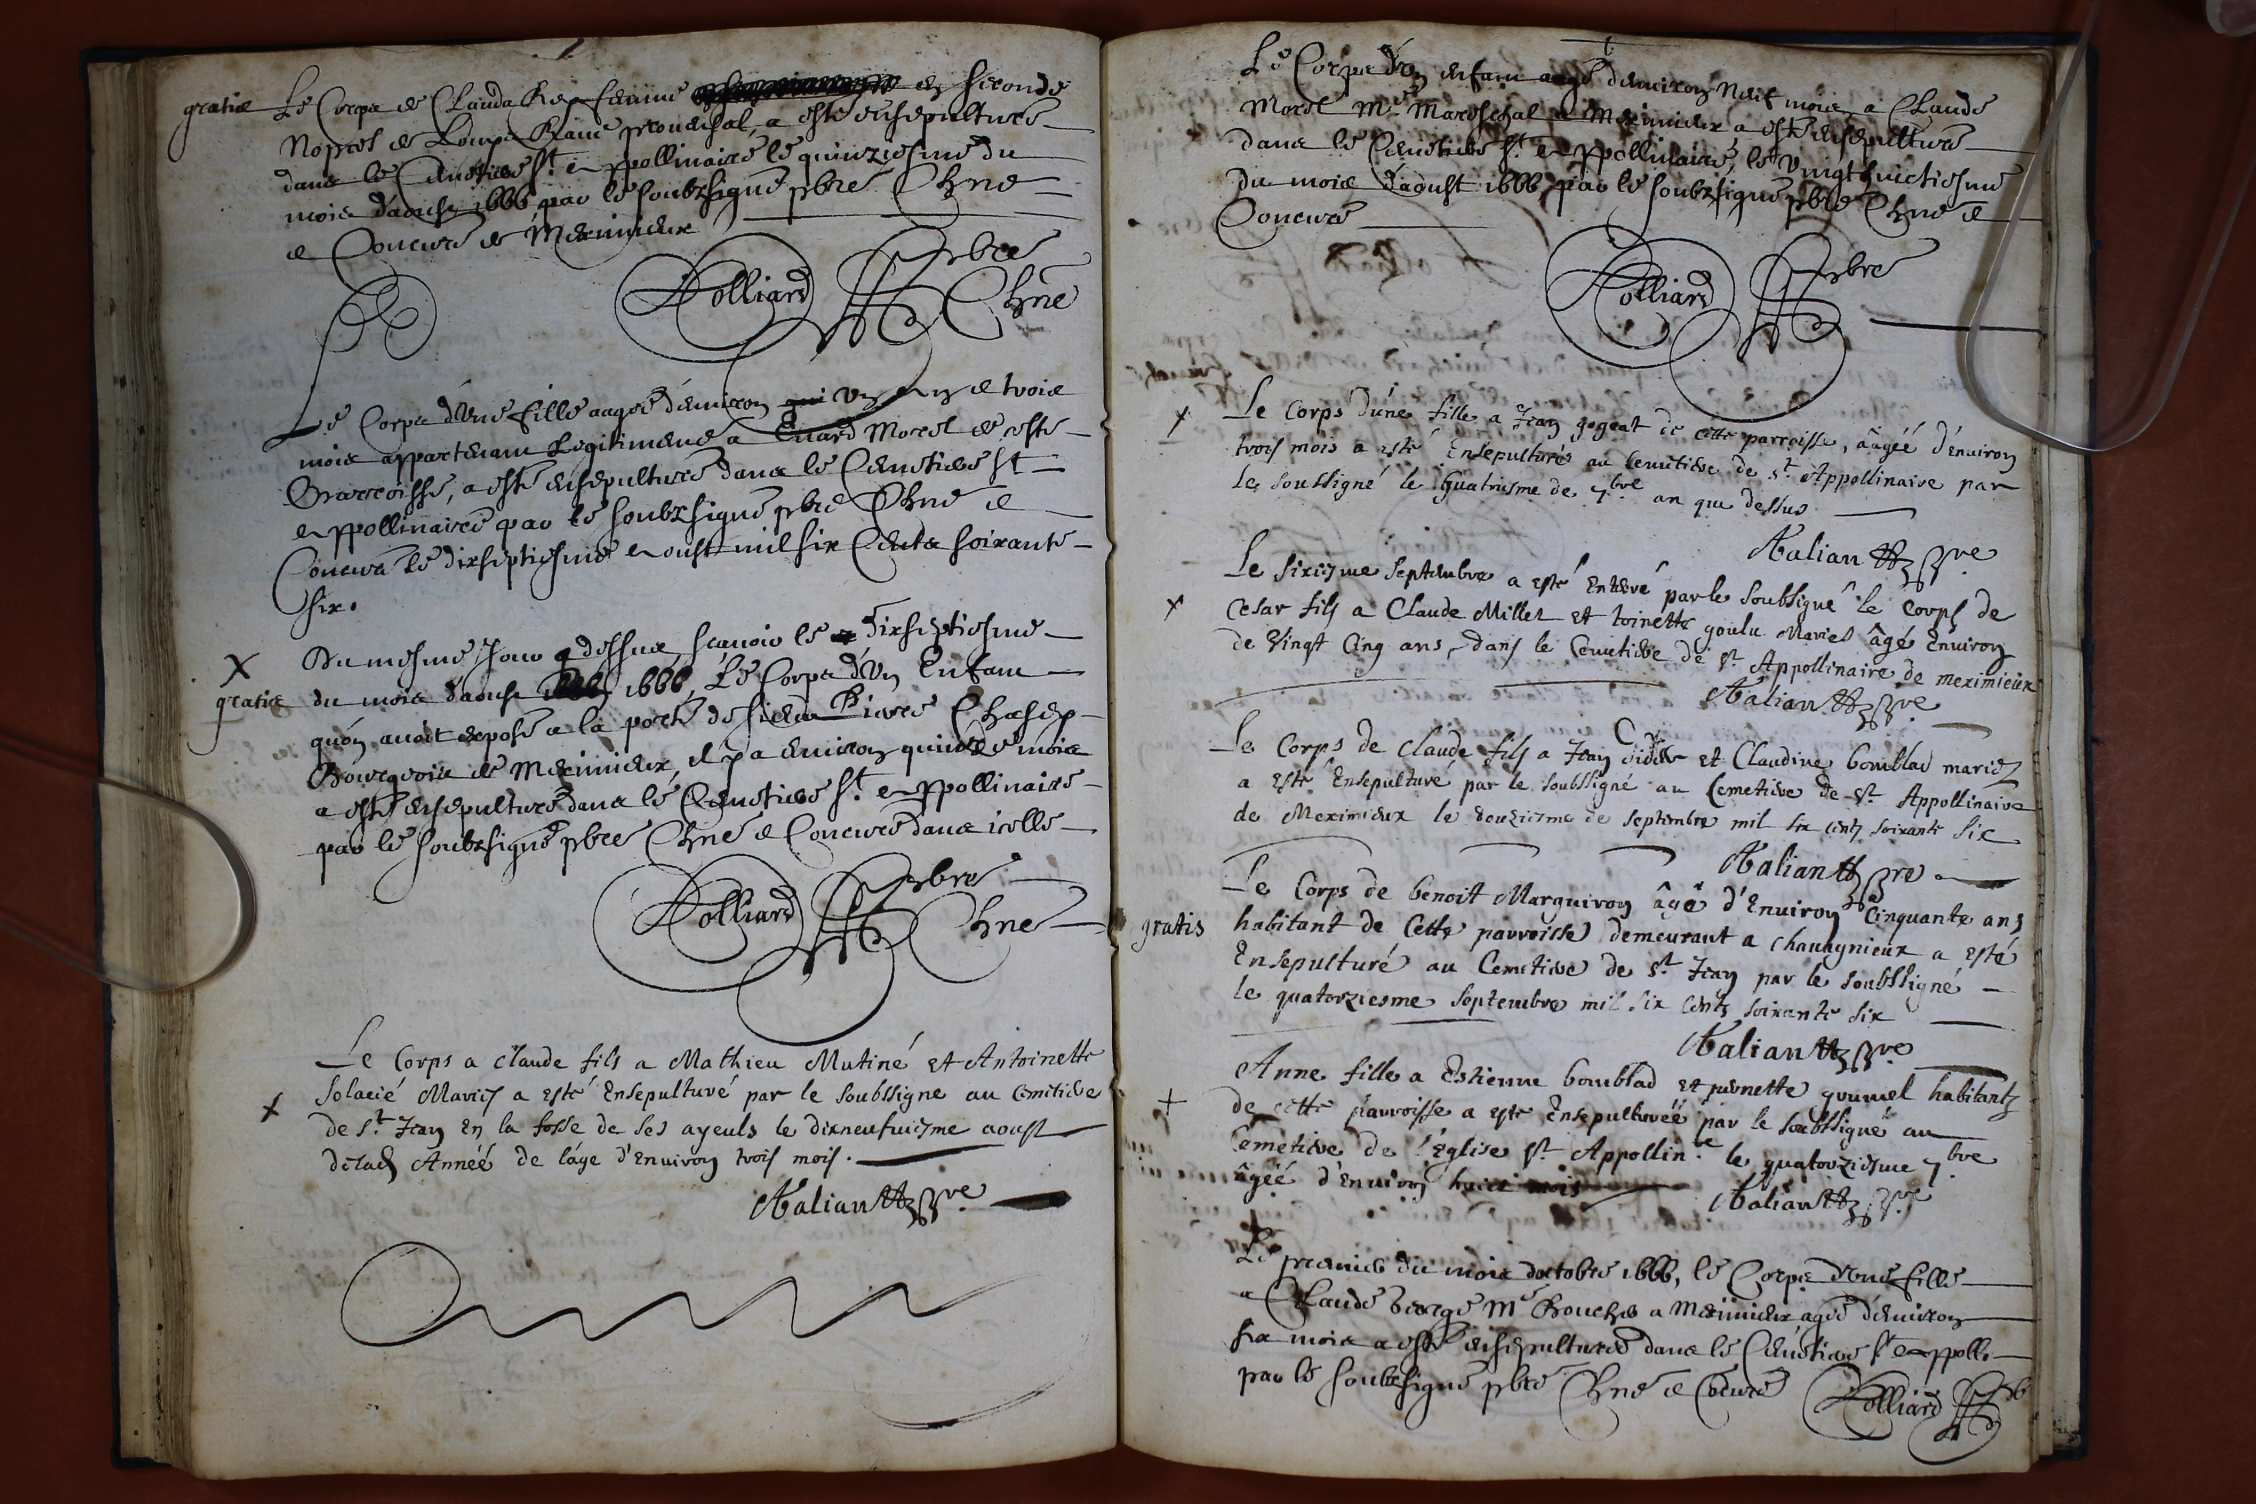 gratis Le Corps de Clauda Rey femme en seconde
Nopces de Louys Rame prouensal, a esté ensepulturé
dans le Cimetiere St Appollinaire le quinziesme du
mois d'aoust 1666 par le soubzsigné pbre Chne
& Concuré de Meximieux
Rolliard pbre
Chne
Le Corps d'vne fille aagée d'enuiron vn an & trois
mois appartenant Legitimemt a Enard Morel de ceste
Parroisse, a esté ensepulturé dans le Cimetiere St
Appollinaire par le soubzsigné pbre Chne &
Concuré le dixseptiesme Aoust mil six Cents soixante
six.
Du mesme jour q dessus, scauoir le dixseptiesme
gratis du mois d'aoust 1666, Le Corps d'vn Enfant
qu'on auoit exposé a la porte de sieur Pierre Chasep
Bourgeois de Meximieux, il y a enuiron quinze mois
a esté ensepulturé dans le Cimetiere St Appollinaire
par le soubzsigné pbre Chne & Concuré dans icelle
Rolliard pbre
Chne
Le Corps a claude fils a Mathieu Mutiné et Antoinette
Solacié Mariés a esté Ensepulturé par le soubssigné au Cemetiere
de St Jean En la fosse de ses ayeuls le dixneufuiesme aoust
de lad Année de l'âge d'enuiron trois mois.
Aalian pre
Le Corps d'vn enfant aagé d'enuiron neuf mois a Claude
Morel Me Mareschal a Meximieux a esté ensepulturé
dans le Cimetiere St Appollinaire, le vingthuictiesme
du mois d'aoust 1666, par le soubzsigné pbre Chne &
Concuré
Rolliard pbre
x Le Corps d'une fille a Jean gogeat de cette parroisse, âagéé d'enuiron
trois mois a esté Ensepulturée au Cemetiere de St Appollinaire par
le soubssigné le Quatriesme de 7bre an que dessus
Aalian pre
Le sixiesme septembre a esté Enterré par le soubssigné le corps de
x Cesar fils a Claude Millet et toinette goulu Mariés âgé Enuiron
de Vingt Cinq ans, dans le Cemetiere de St Appollinaire de meximieux
Aalian pre
Le Corps de Claude fils a Jean Didier et Claudine bomblad mariez
a esté Ensepulturé par le soubssigné au Cemetiere de St Appollinaire
de Meximieux le douziesme de septembre mil six cents soixante six
Aalian pre
Le Corps de benoit Marguiron âgé d'Enuiron Cinquante ans
gratis habitant de Cette parroisse demeurant a chauagnieux a esté
Ensepulturé au Cemetiere de St Jean par le soubssigné
le quatorziesme septembre mil six cents soixante six
Aalian pre
Anne fille a Estienne bomblad et pernette goumel habitants
+ de cette parroisse a esté Ensepulturéé par le soubssigné au
Cemetiere de l'Eglise St Appollin.re le quatorziesme 7bre
âgéé d'Enuiron huict mois
Aalian pre
Le premier du mois d'octobre 1666, le Corps d'vne fille
a Claude George Me Boucher a Meximieux agée d'enuiron
six mois a esté ensepulturée dans le Cimetiere St Appolli
par le soubzsigné pbre Chne & Concuré Rolliard pb